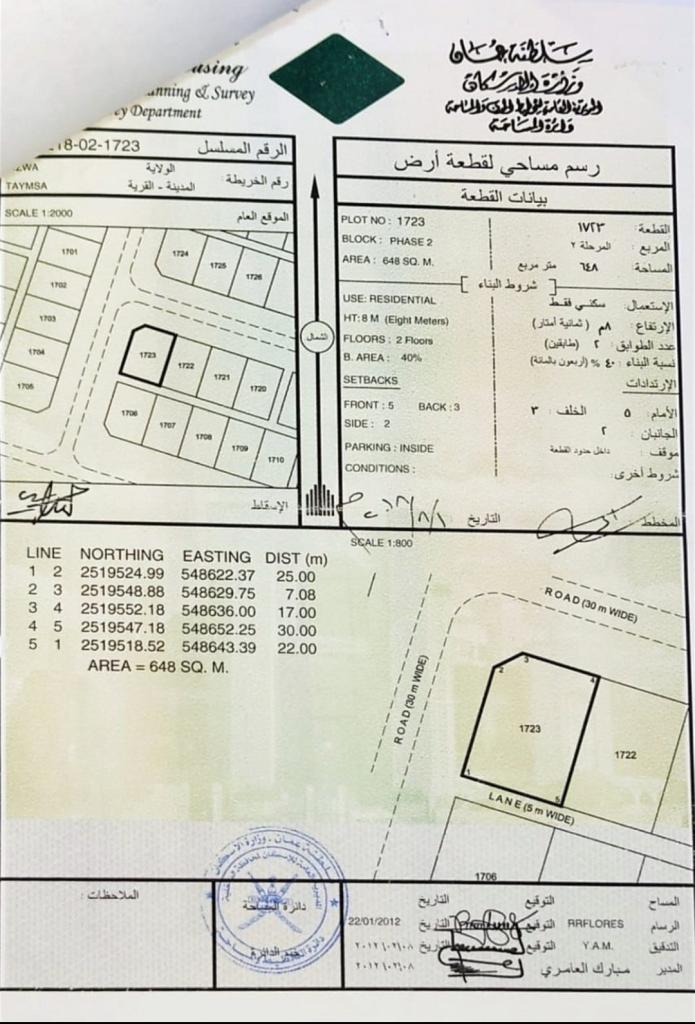 سلطنة عمان
وزارة الإسكان
using
anning & Survey
ey Department
دائرة المساحة
18-02-1723 الرقم المسلسل
رسم مساحي لقطعة أرض
الولاية
TAYMSA المدينة - القرية رقم الخريطة :
بيانات القطعة
SCALE 1:2000 الموقع العام
PLOT NO : 1723 القطعة : ١٧٢٣
BLOCK : PHASE 2 المربع : المرحلة ٢
AREA : 648 SQ. M. المساحة : ٦٤٨ متر مربع
شروط البناء
USE: RESIDENTIAL الإستعمال: سكني فقط
HT: 8 M (Eight Meters) الإرتفاع : ٨م (ثمانية أمتار)
FLOORS : 2 Floors عدد الطوابق : ٢ (طابقين)
B. AREA : 40% نسبة البناء : ٤٠ % (اربعون بالمائة)
SETBACKS الإرتدادات
FRONT : 5 BACK : 3 الأمام: ٥ الخلف : ٣
SIDE : 2 الجانبان : ٢
PARKING : INSIDE موقف : داخل حدود القطعة
CONDITIONS : شروط أخرى:
المخطط التاريخ
1701
1702
1703
1704
1705
1724
1725
1726
1723
1722
1721
1720
1706
1707
1708
1709
1710
الشمال
الإسقاط
SCALE 1:800
LINE NORTHING EASTING DIST (m)
1 2 2519524.99 548622.37 25.00
2 3 2519548.88 548629.75 7.08
3 4 2519552.18 548636.00 17.00
4 5 2519547.18 548652.25 30.00
5 1 2519518.52 548643.39 22.00
AREA = 648 SQ. M.
ROAD (30 m WIDE)
ROAD (30 m WIDE)
2
3
4
1723
1722
1
5
LANE (5 m WIDE)
1706
الملاحظات :
دائرة المساحة
المساح التوقيع التاريخ
الرسام RRFLORES التوقيع التاريخ 22/01/2012
التدقيق Y.A.M. التوقيع التاريخ ٢٠١٢/٠٢/٠٨
المدير مبارك العامري ٢٠١٢/٠٢/٠٨